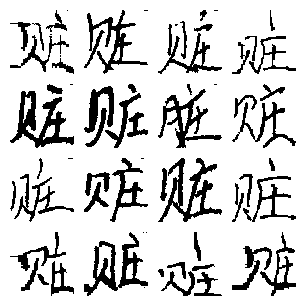 赃赃赃赃
赃赃赃赃
赃赃赃赃
赃赃赃赃